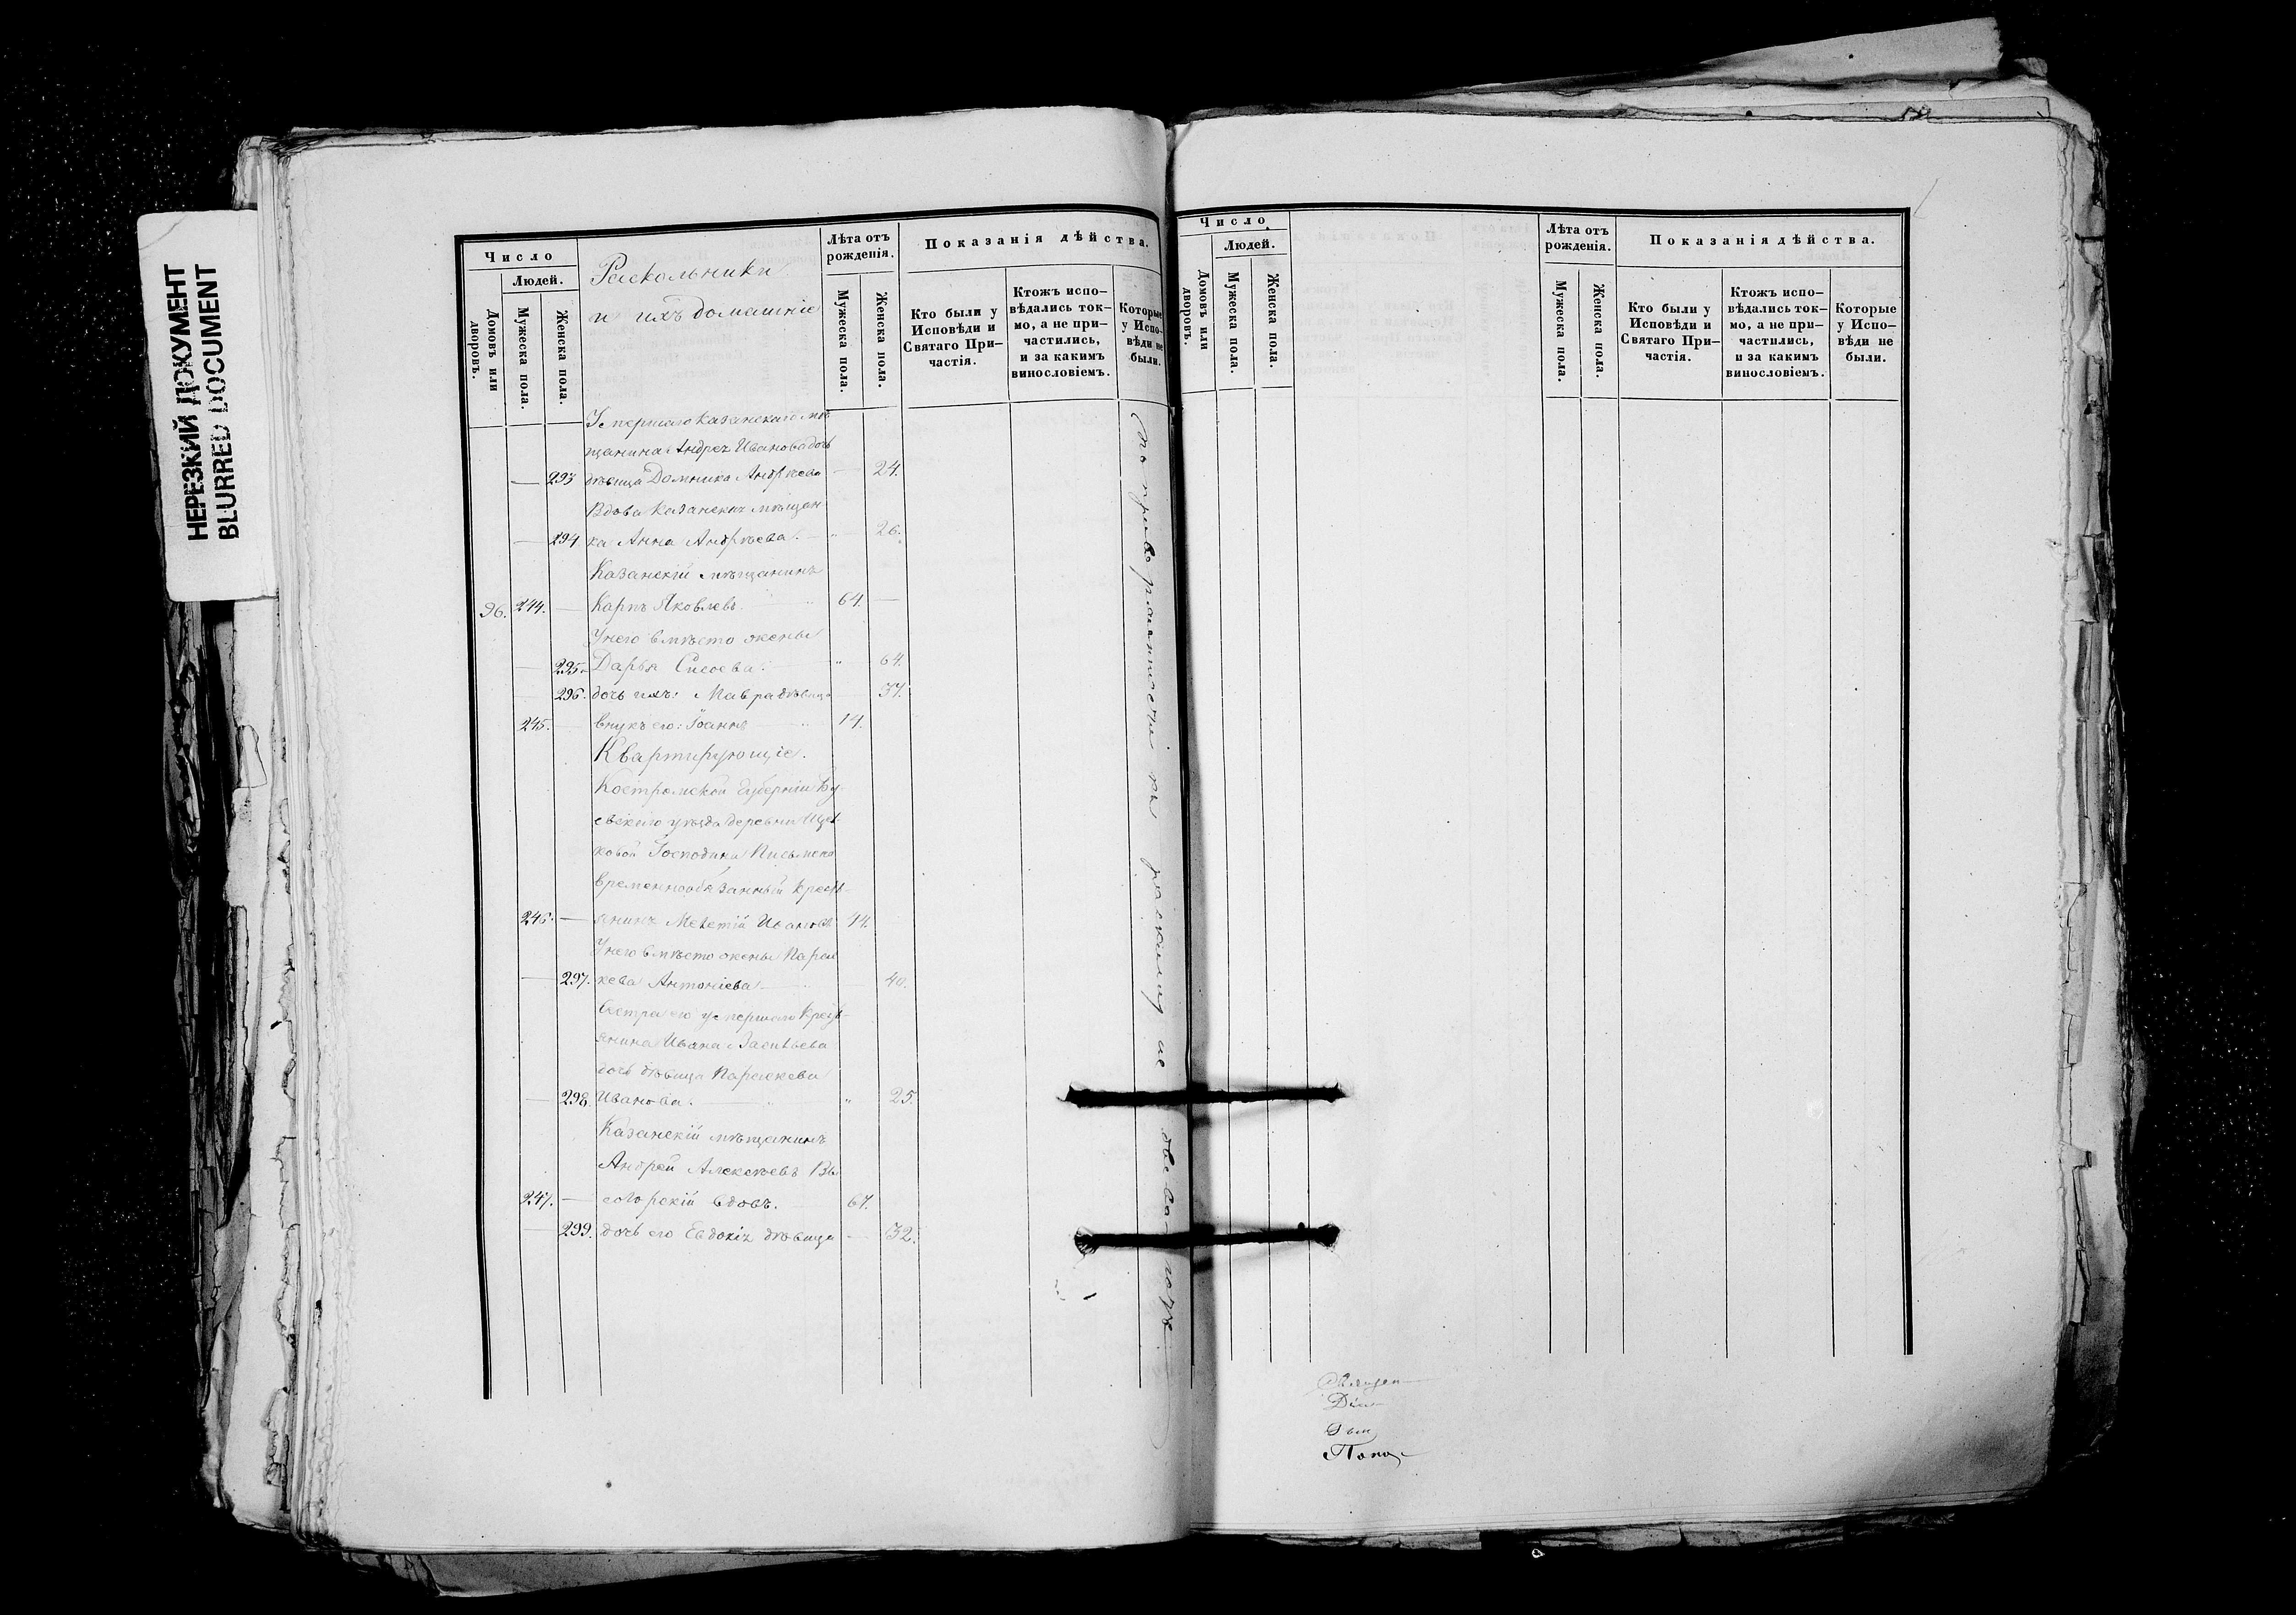 НЕРЕЗКИЙ ДОКУМЕНТ
BLURRED DOCUMENT
Число
Людей.
Домовъ или дворовъ.
Мужеска пола.
Женска пола.
Раскольники
и ихъ домашніе
Лѣта отъ рожденія.
Мужеска пола.
Женска пола.
Показанія дѣйства.
Кто были у Исповѣди и Святаго При-
частія.
Ктожъ испо-
вѣдались ток-
мо, а не при-
частились,
и за какимъ
винословіемъ.
Которые
у Испо-
вѣди не
были.
Умершаго Казанскаго мѣ
щанина Андрея Иванова дочь
293 дѣвица Домника Андрѣева 24.
Вдова Казанская мѣщан
294 ка Анна Андрѣева. 26.
Казанскій мѣщанинъ
96. 244. Карпъ Яковлевъ. 64.
У него вмѣсто жены
295. Дарья Сисоева. 64.
296. дочь ихъ: Мавра дѣвица 37.
245. внукъ его: Іоаннъ 14.
Квартирующіе.
Костромской Губерніи Бу-
евскаго уѣзда деревни
ковой Господина
временнообязанный Кресть-
246. янинъ Мелетій Ивановъ 44.
У него вмѣсто жены Парас
297. кева Антоніева. 40.
Сестра его умершаго Кресть-
янина Ивана Васильева
дочь дѣвица Параскева
298. Иванова. 25.
Казанскій мѣщанинъ
Андрей Алексѣевъ Вы
247. согорскій вдовъ. 67.
299. дочь его Евдокія дѣвица 32.
по приверженности къ расколу не
Число
Людей.
Домовъ или дворовъ.
Мужеска пола.
Женска пола.
Лѣта отъ рожденія.
Мужеска пола.
Женска пола.
Показанія дѣйства.
Кто были у
Исповѣди и
Святаго При-
частія.
Ктожъ испо-
вѣдались ток-
мо, а не при-
частились,
и за какимъ
винословіемъ.
Которые
у Испо-
вѣди не
были.